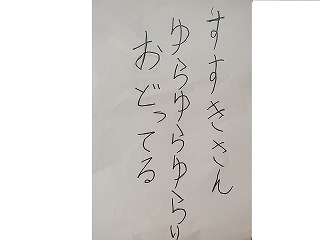 すすきさん
ゆらゆらゆらり
おどってる